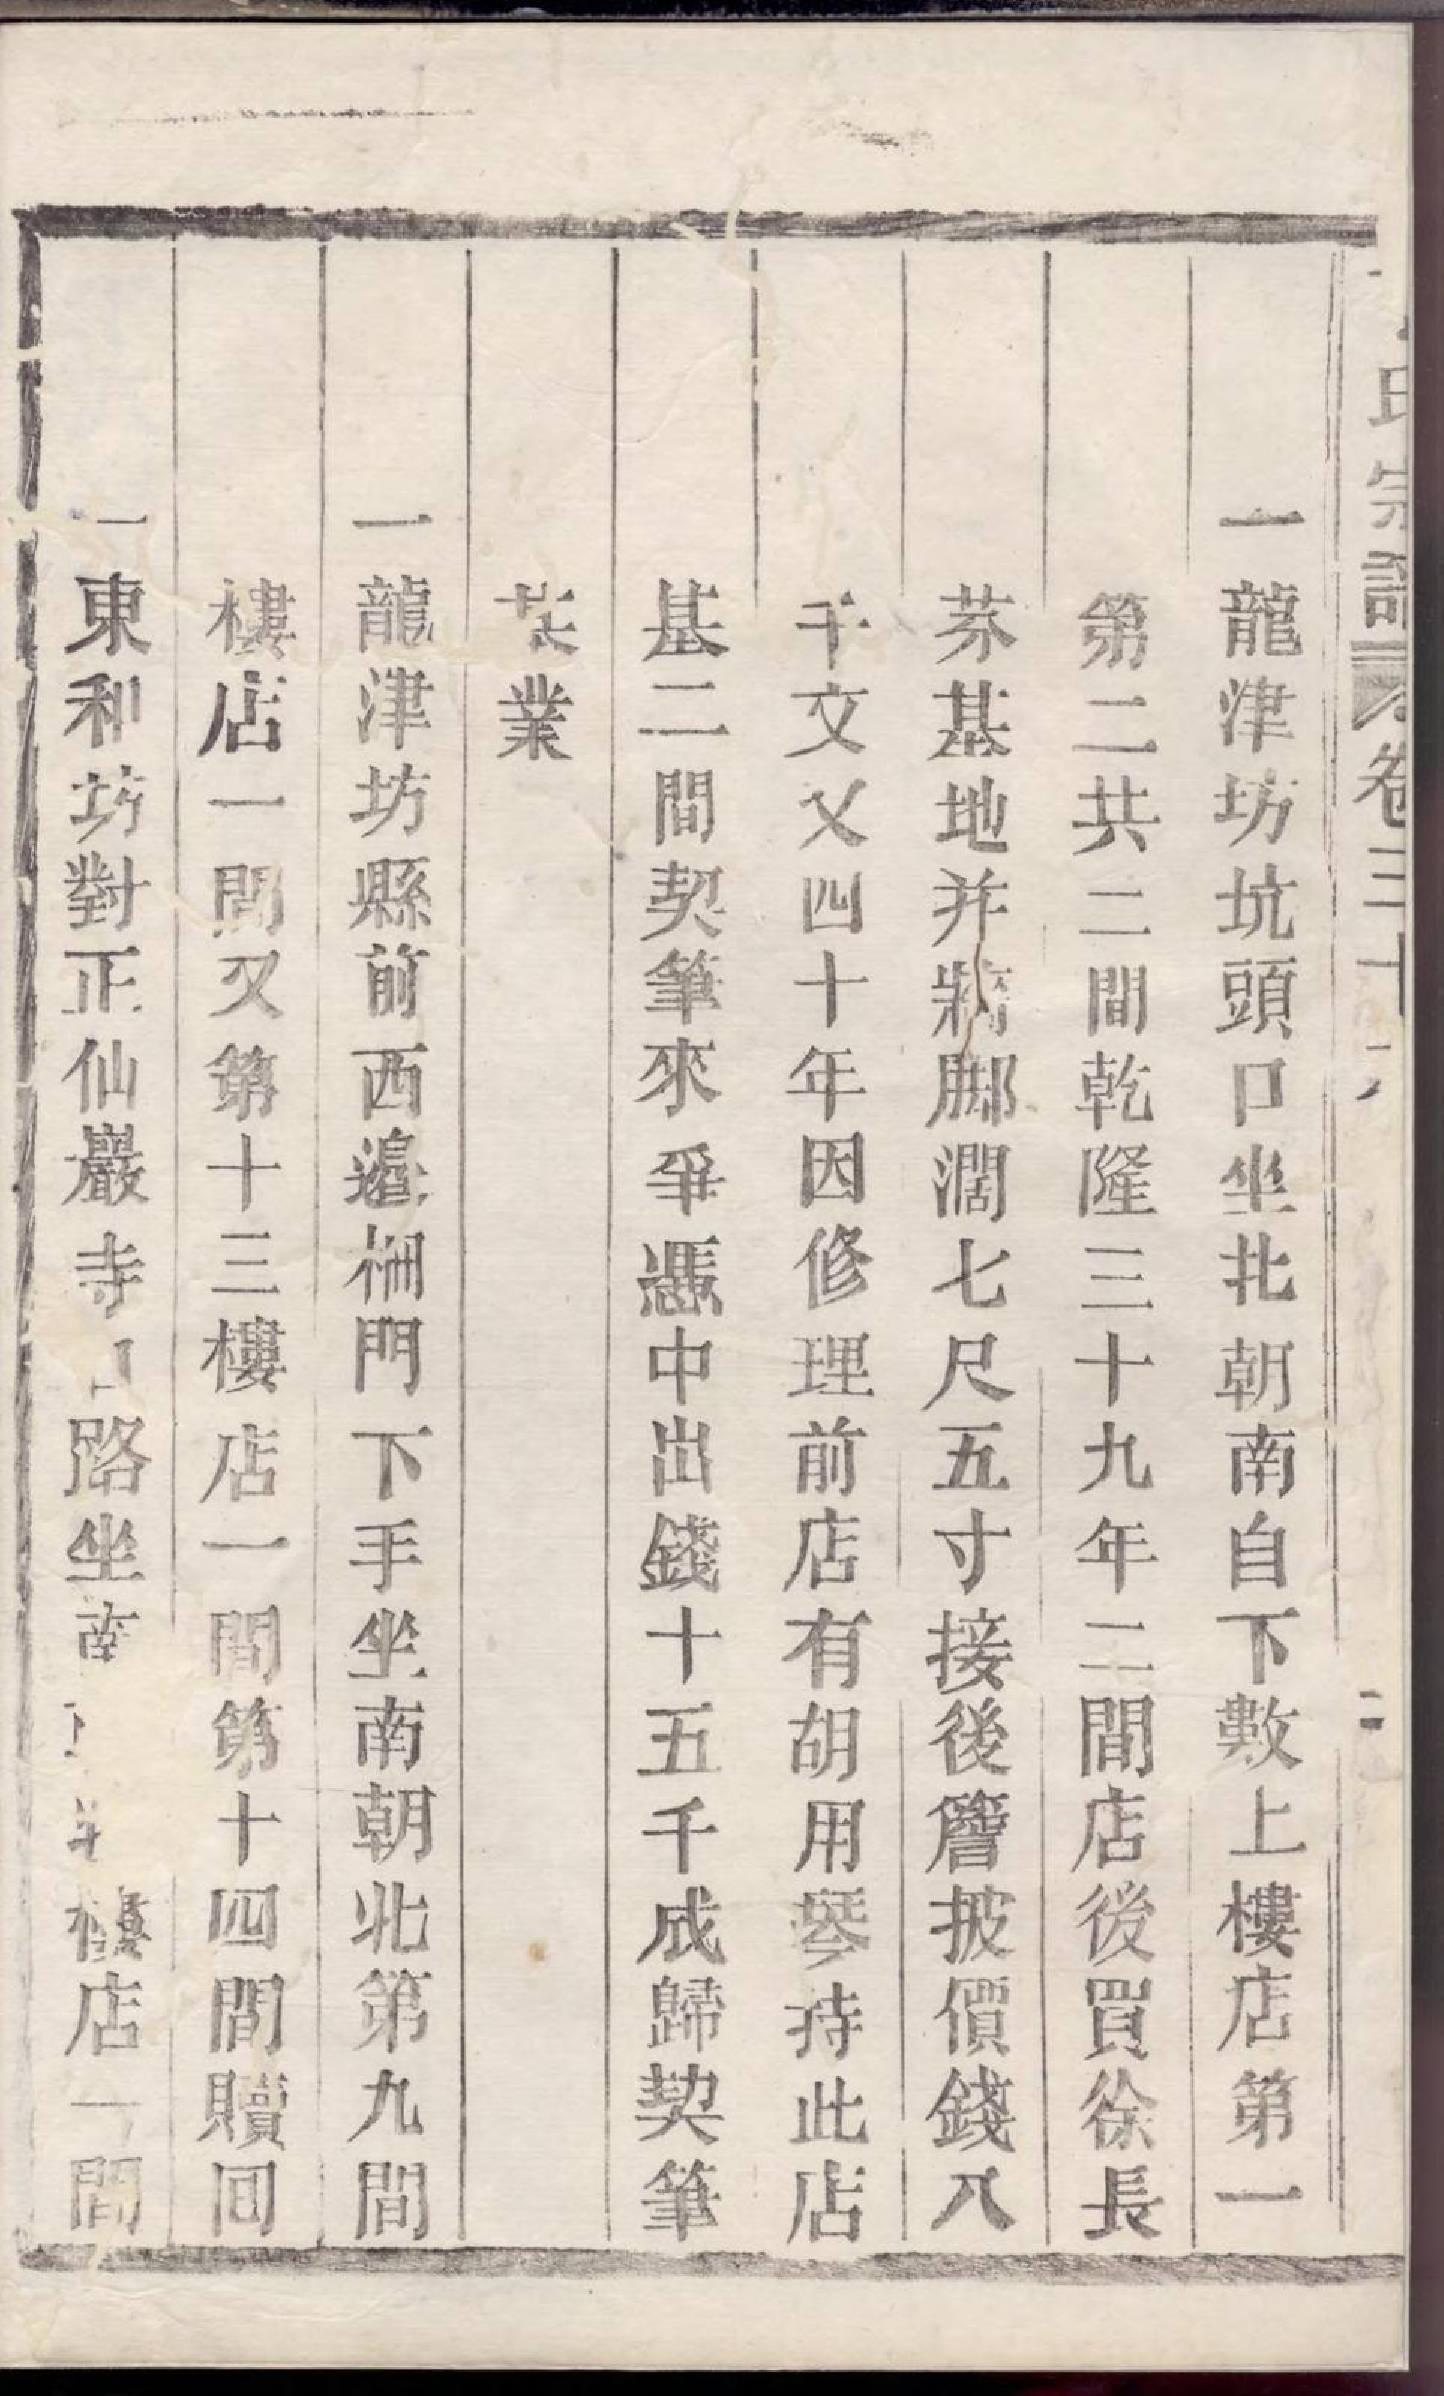 氏宗譜 卷三十
一龍津坊坑頭口坐北朝南自下數上樓店第一
第二共二間乾隆三十九年二間店後買徐長
茶基地并牆脚濶七尺五寸接後簷披價錢八
千文乂四十年因修理前店有胡用琴持此店
基二間契筆來爭憑中出錢十五千成歸契筆
業
一龍津坊縣前西邉柵門下手坐南朝北第九間
樓店一間又第十三樓店一間第十四間贖回
一東和坊對正仙巖寺路坐南樓店一間
二